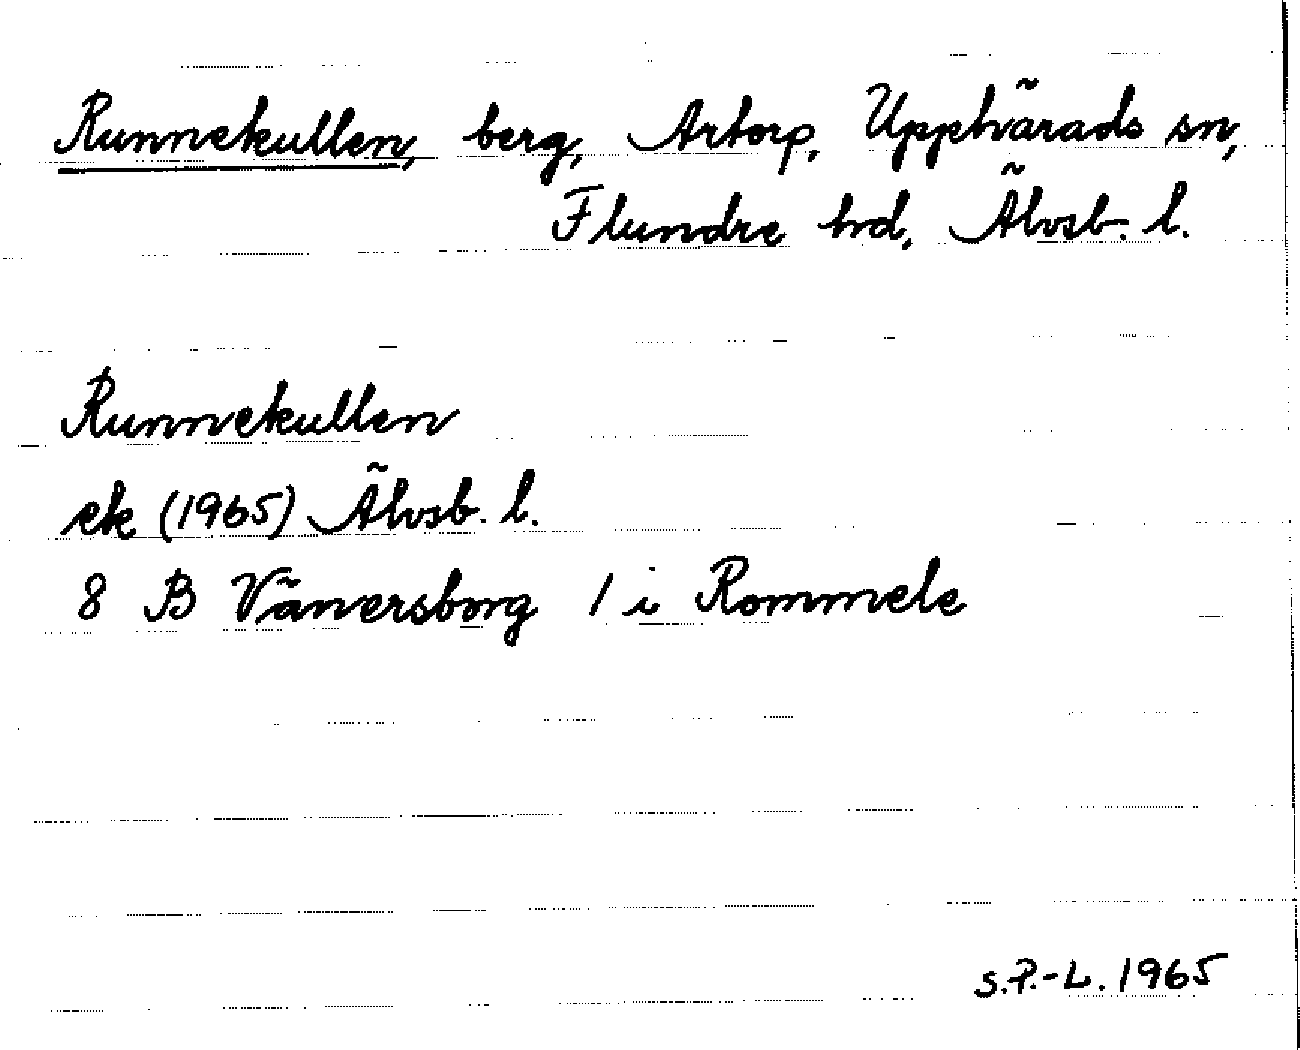 Runnekullen, berg, Artorp, Upphärads sn,
Flundre hd, Älvsb. l.
Runnekullen
ek (1965) Älvsb. l.
8 B Vänersborg 1 i Rommele
S.P.-L. 1965